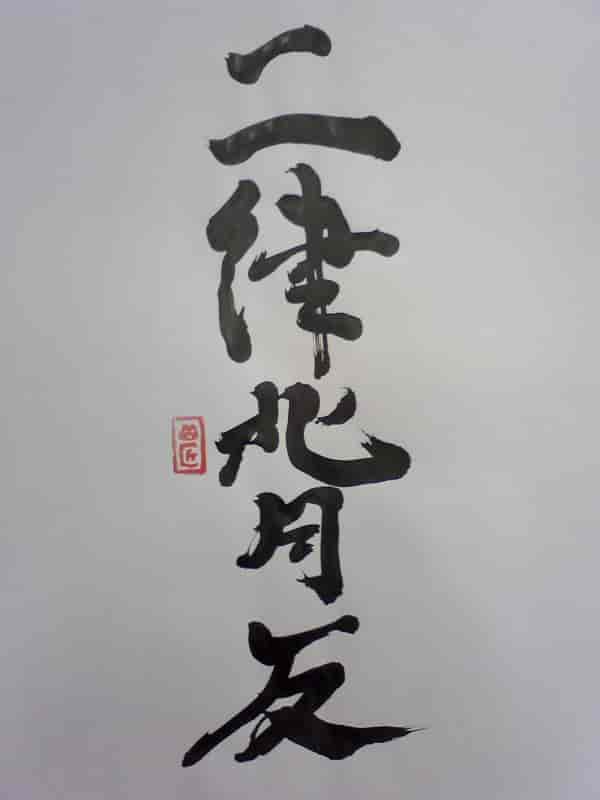 二律背反
匠